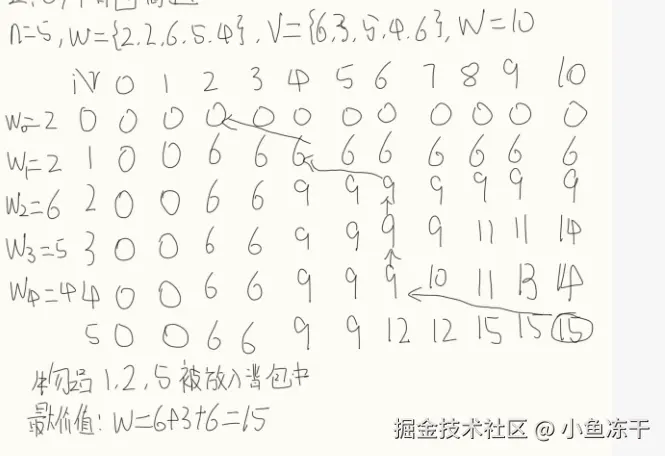 n=5,W={2.2.6.5.4}.V={6.3.5.4.6},W=10
i\V 0 1 2 3 4 5 6 7 8 9 10
W₀=2 0 0 0 0 0 0 0 0 0 0 0 0
W₁=2 1 0 0 6 6 6 6 6 6 6 6 6
W₂=6 2 0 0 6 6 9 9 9 9 9 9 9
W₃=5 3 0 0 6 6 9 9 9 9 11 11 14
W₄=4 4 0 0 6 6 9 9 9 10 11 13 14
5 0 0 6 6 9 9 12 12 15 15 15
物品1,2,5被放入背包中
最大价值:W=6+3+6=15
掘金技术社区 @ 小鱼冻干